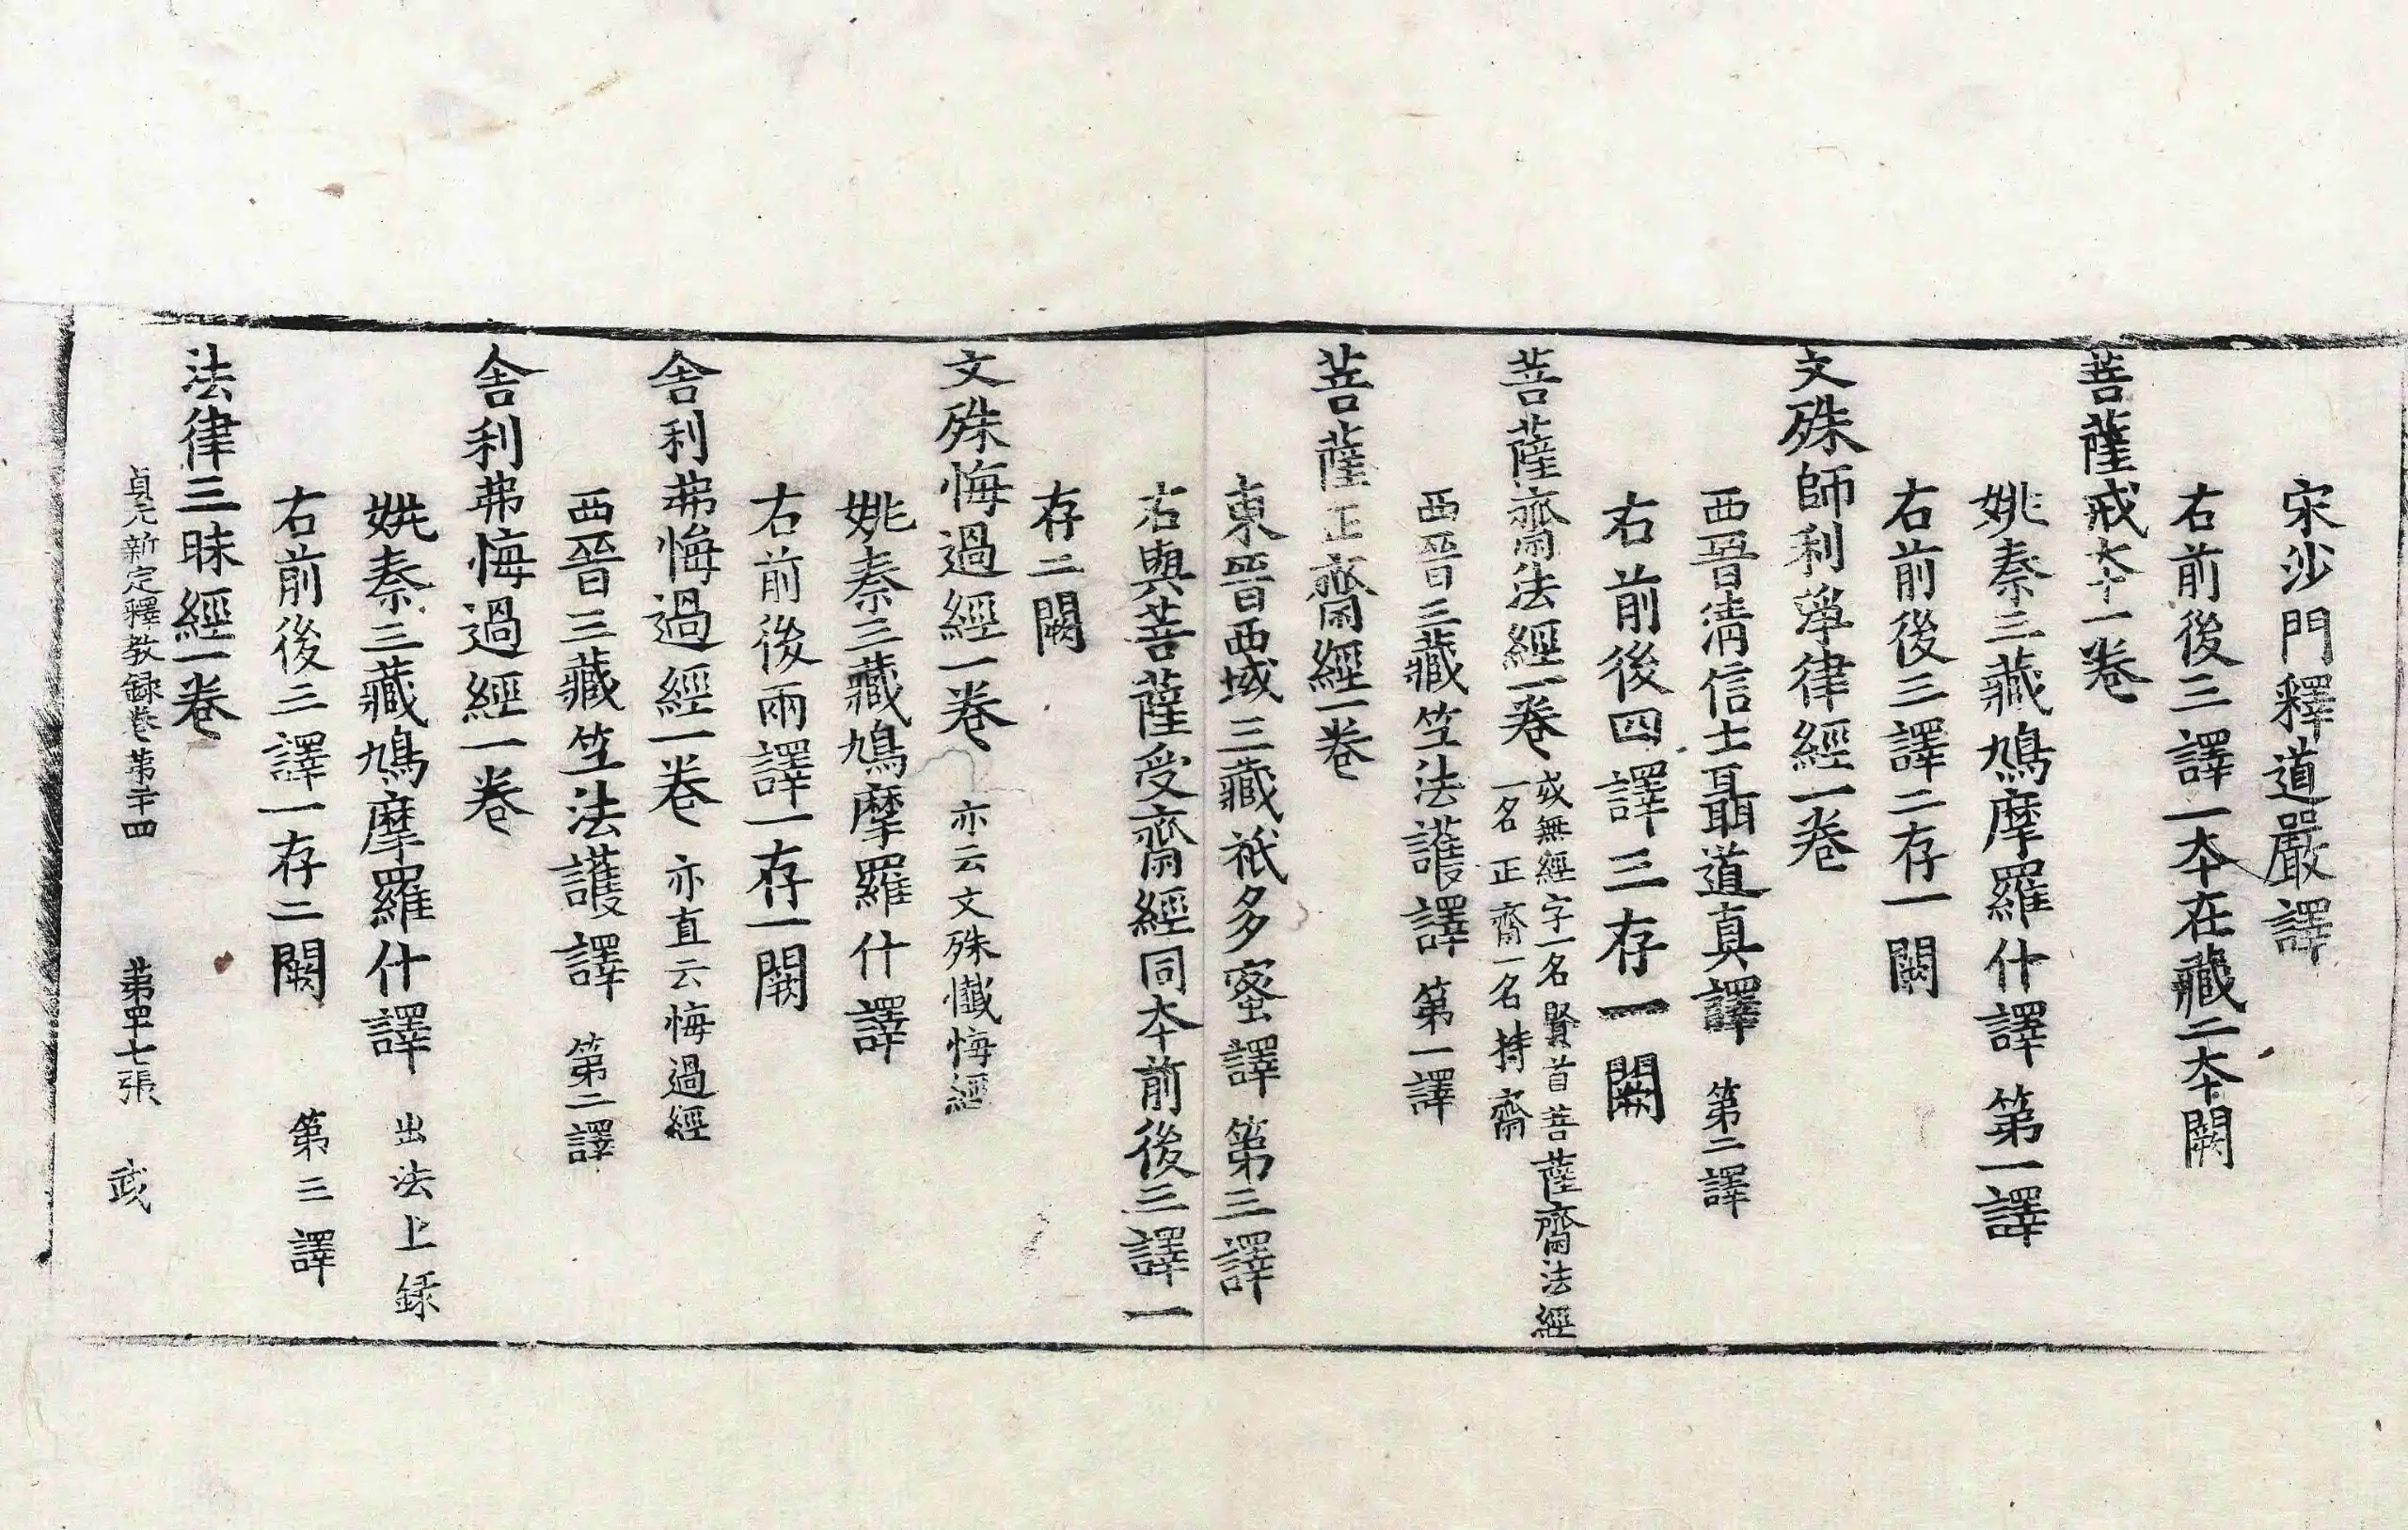 宋沙門釋道嚴譯
右前後三譯一本在藏二本闕
菩薩戒本一卷
姚秦三藏鳩摩羅什譯第一譯
右前後三譯二存一闕
文殊師利淨律經一卷
西晉清信士聶道真譯 第二譯
右前後四譯三存一闕
菩薩齋法經一卷 或無經字一名賢首菩薩齋法經
一名正齋一名持齋
西晉三藏竺法護譯 第一譯
菩薩正齋經一卷
東晉西域三藏祇多蜜譯 第三譯
右與菩薩受齋經同本前後三譯一
存二闕
文殊悔過經一卷 亦云文殊懺悔經
姚秦三藏鳩摩羅什譯
右前後兩譯一存一闕
舍利弗悔過經一卷 亦直云悔過經
西晉三藏竺法護譯 第二譯
舍利弗悔過經一卷
姚秦三藏鳩摩羅什譯 出法上錄
右前後三譯一存二闕 第三譯
法律三昧經一卷
貞元新定釋教錄卷第二十四 第四十七張 武